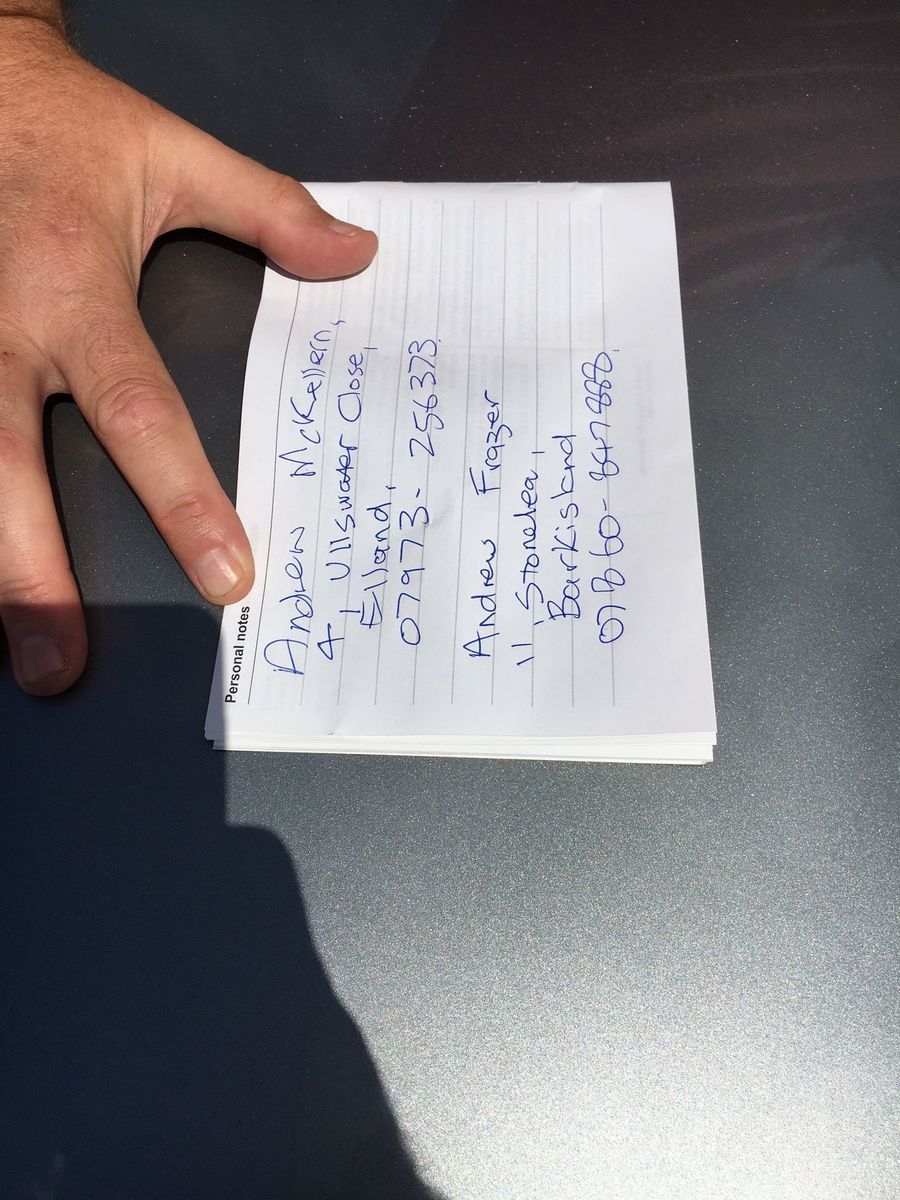 Personal notes
Andrew McKellern,
4 Ullswater Close,
Elland,
07973- 256373.
Andrew Frazer
11, Stonelea,
Barkisland
07860-847888.